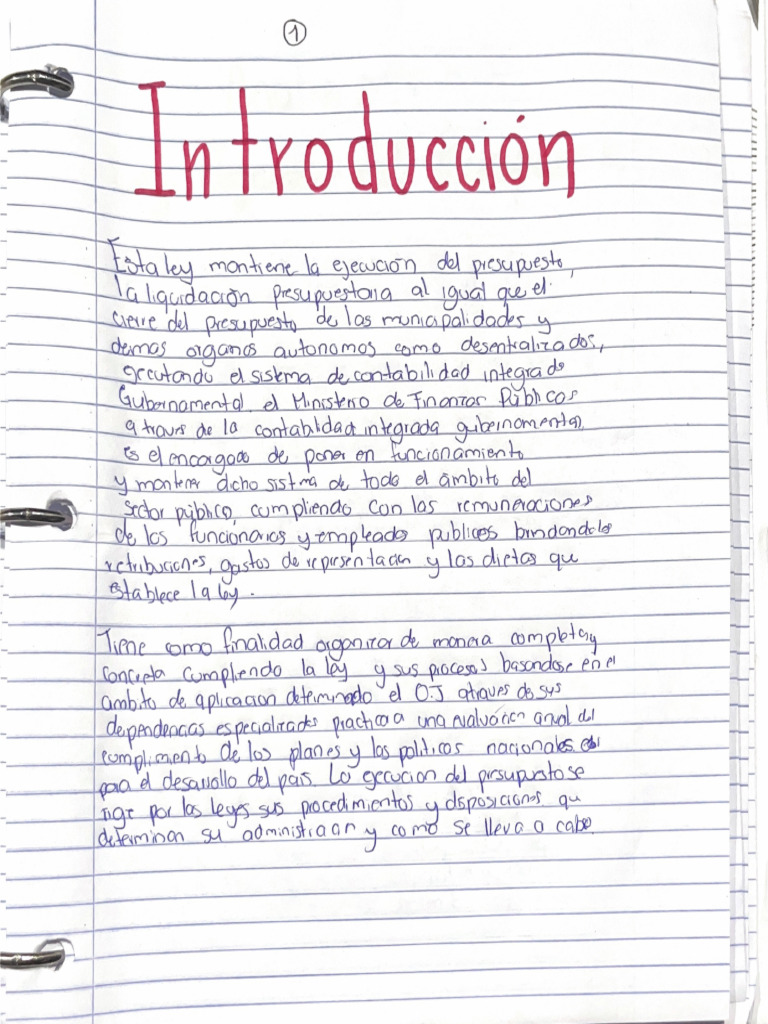 1
Introducción
Esta ley montiene la ejecución del presupuesto,
la liquidación presupuestaria al igual que el
cierre del presupuesto de las municipalidades y
demas organos autonomos como desentralizados,
ejecutando el sistema de contabilidad integrado
Gubernamental el Ministerio de Finanzas Públicas
a traves de la contabilidad integrada gubernamental,
es el encargado de poner en funcionamiento
y mantener dicho sistema de todo el ámbito del
sector público, cumpliendo con las remuneraciones
de los funcionarios y empleados publicos brindandoles
retribuciones, gastos de representacion y las dietas que
establece la ley.
Tiene como finalidad organizar de manera completa y
concreta cumpliendo la ley y sus procesos basandose en el
ambito de aplicacion determinado el O.J atraves de sus
dependencias especializadas practicara una evaluación anual del
complimento de los planes y las politicas nacionales
para el desarollo del país. La ejecucion del presupuesto se
rige por las leyes sus procedimientos y disposiciones que
determinan su administracion y como se lleva a cabo.